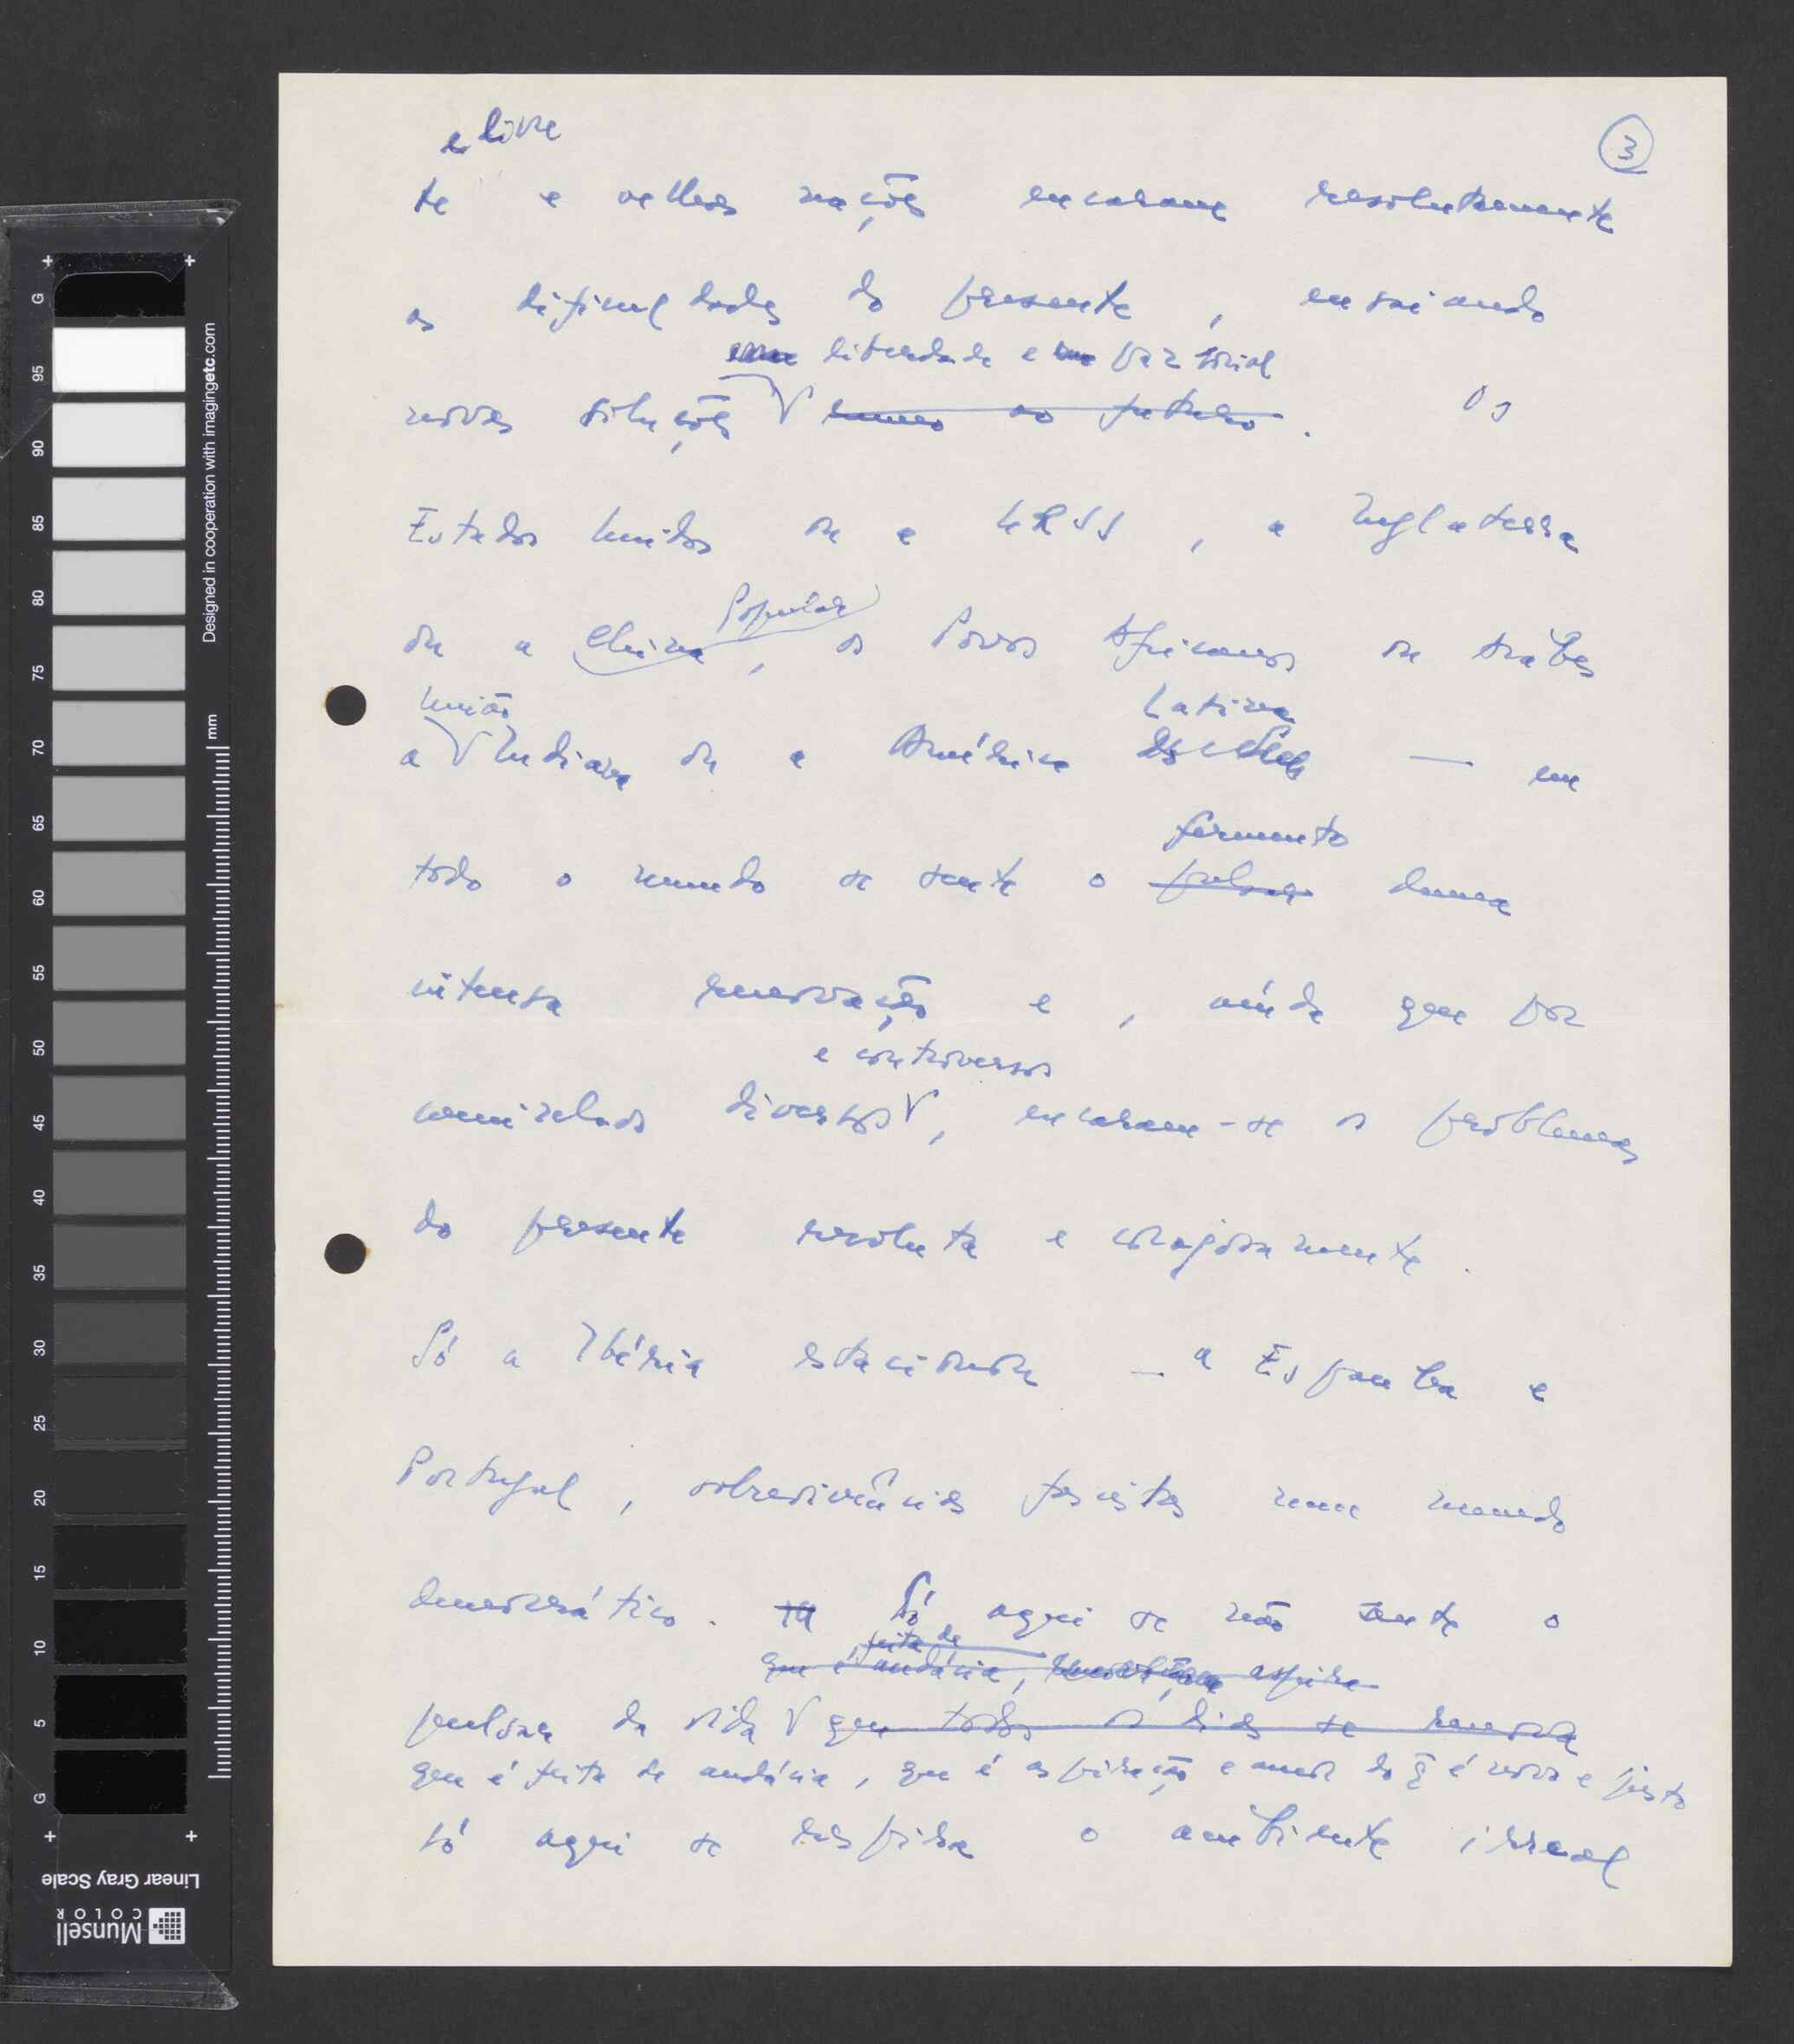 3
e livre
te e velhas nações encaram resolutamente
as dificuldades do presente, ensaiando
em liberdade e em paz social
novas soluções rumo ao futuro. Os
Estados Unidos ou a URSS, a Inglaterra
Popular
ou a China, os Povos Africanos ou árabes
União Latina
a Indiana ou a América — em
fermento
todo o mundo se sente o pulsar duma
intensa renovação e, ainda que por
e controversos
caminhos diversos, encaram-se os problemas
do presente resoluta e corajosamente.
Só a Ibéria estacionou — a Espanha e
Portugal, sobrevivências fascistas num mundo
democrático. Só aqui se não sente o
feita de
que é audácia, aspira
pulsar da vida que todos os dias se renova
que é feita de audácia, que é aspiração e amor do q̃ é novo e justo
só aqui se respira o ambiente irreal
G 95 90 85 80 75 70 65 60 55 50 45 40 35 30 25 20 15 10 5 G
Designed in cooperation with imagingetc.com
mm
Linear Gray Scale
Munsell
COLOR